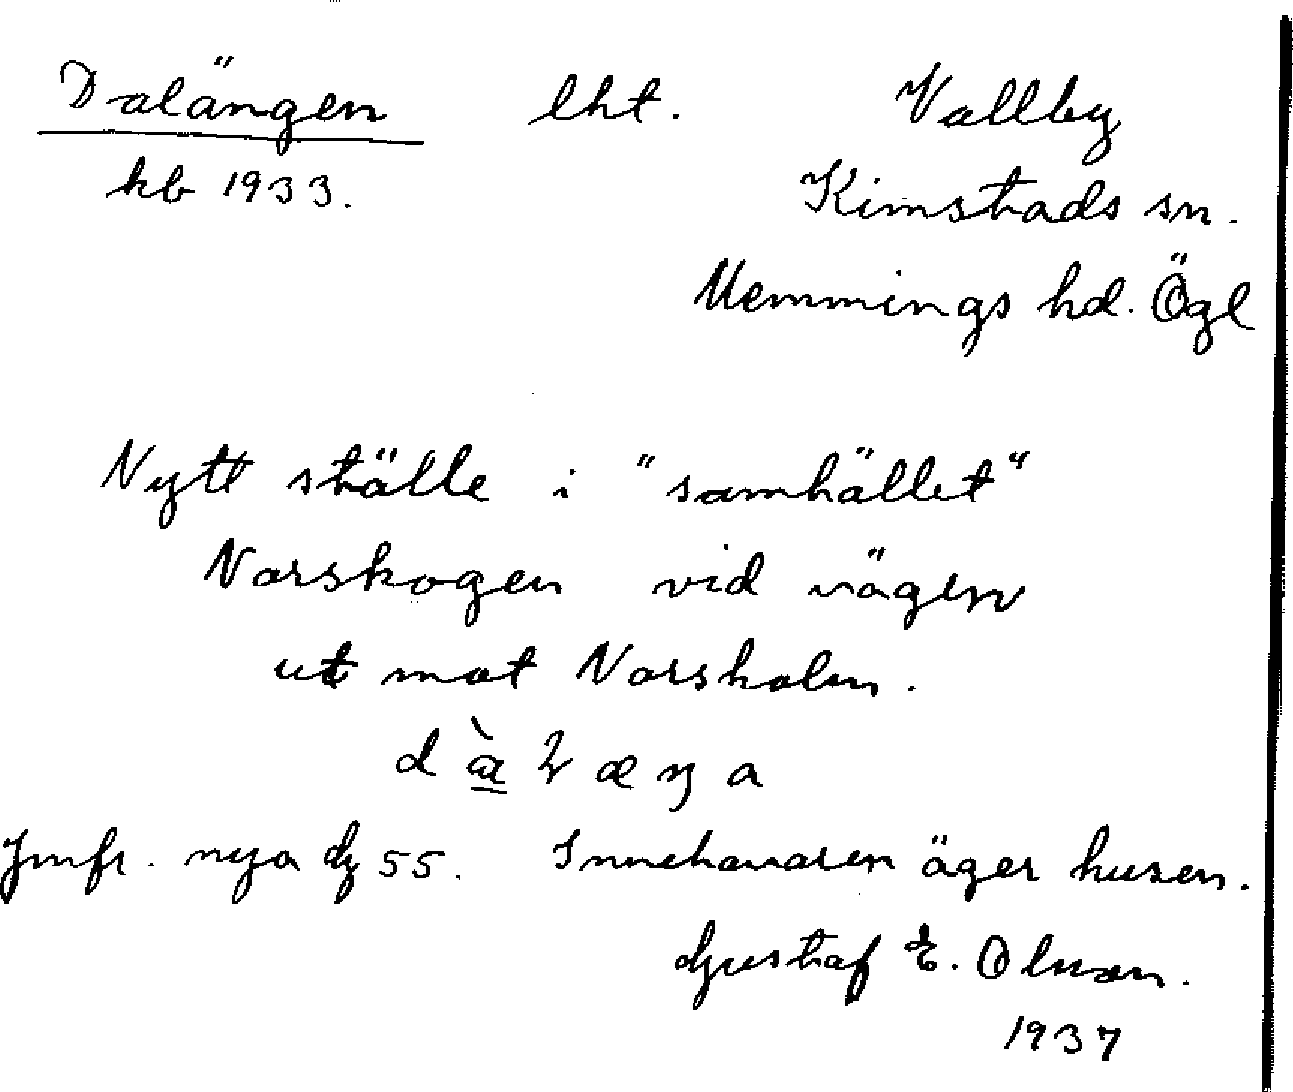 Dalängen lht. Vallby
kb 1933. Kimstads sn.
Memmings hd. Ögl
Nytt ställe i "samhället"
Norskogen vid vägen
ut mot Norsholm.
Jmfr. nya 55. Innehavaren äger husen.
Gustaf E. Olsson.
1937